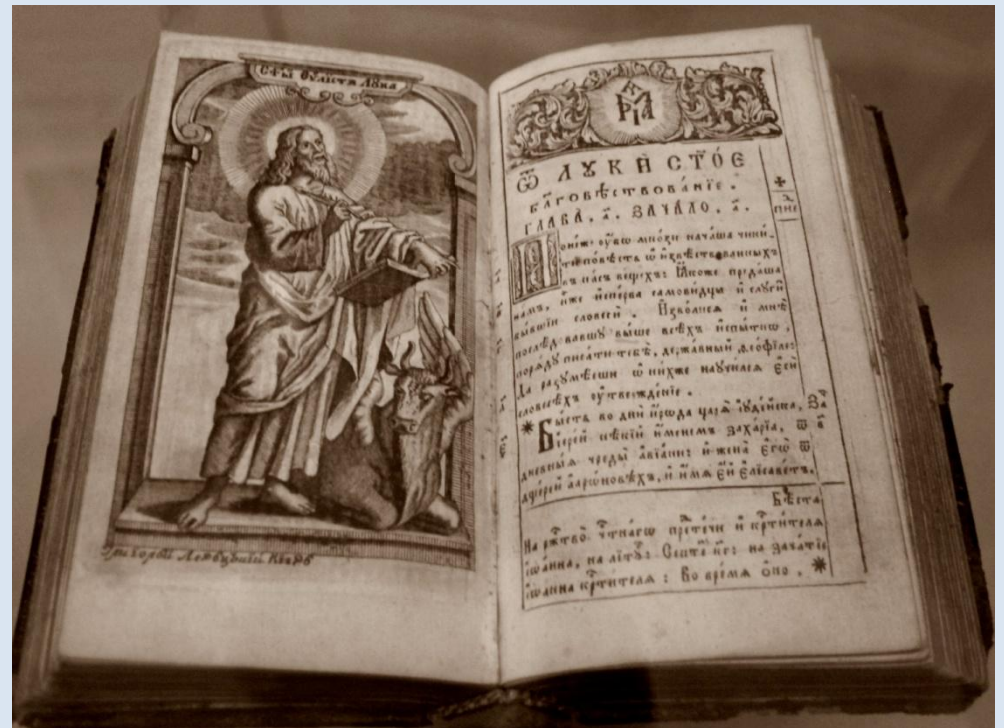 СТ҃Ы ЕѴ҃ЛИСТЪ ЛУКА
МР҃ІА
Ѿ ЛУКЍ СТ҃О́Е
БЛ҃ГОВѢСТВОВА́НЇЕ .
ГЛАВА̀ , а҃ . ЗАЧА́ЛО , а҃ .
Поне́же ᲂу҆́бѡ мно́зи нача́ша чини́-
ти по́вѣсть ѡ҆ и҆звѣ́ствованныхъ
въ на́съ ве́щехъ : Ꙗ҆́коже преда́ша
на́мъ , и҆̀же и҆спе́рва самови́дцы и҆ слꙋгѝ
бы́вшїи словесѝ . И҆зво́лисѧ и҆ мнѣ̀
послѣ́довавшꙋ вы́ше всѣ́хъ и҆спы́тнѡ ,
порѧ́дꙋ писа́ти тебѣ̀ , держа́вный ѳеѻфі́ле :
Да разꙋмѣ́еши ѡ҆ ни́хже наꙋчи́лсѧ є҆сѝ
словесѣ́хъ ᲂу҆твержде́нїе .
* Бы́сть во дни̑ и҆́рѡда царѧ̀ і҆ꙋде́йска ,
і҆ере́й нѣ́кїй и҆́менемъ заха́рїа , ѿ
дне́вныѧ чреды̀ авїа́ни : и҆ жена̀ є҆гѡ̀ ѿ
дще́рей аарѡ́новѣхъ , и҆ и҆́мѧ є҆́й є҆лїсаве́тъ .
Бѣ́ста
На рж҃тво̀ чⷭ҇тна́гѡ прⷣте́чи и҆ крⷭ҇ти́телѧ
і҆ѡа́нна , на лїтꙋ : Септе́ : к҃г : на зача́тїе
і҆ѡа́нна крⷭ҇ти́телѧ : Во вре́мѧ ѻ҆́но , *